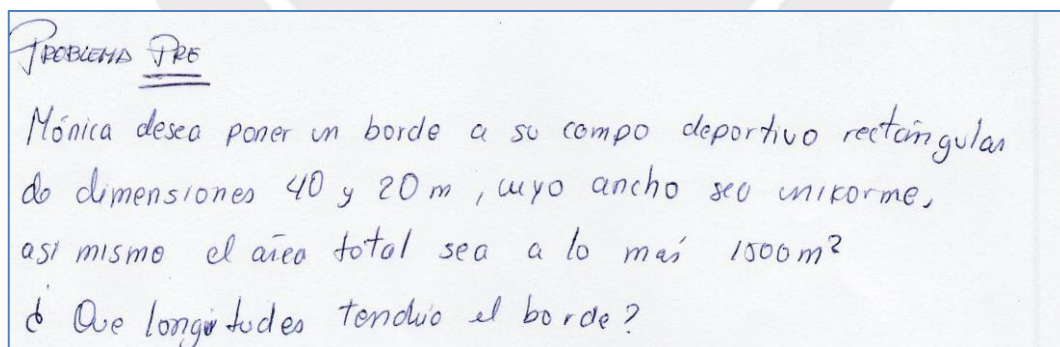 PROBLEMA PRE
Mónica desea poner un borde a su campo deportivo rectángular
de dimensiones 40 y 20 m, cuyo ancho sea uniforme,
asi mismo el área total sea a lo más 1500 m²
¿ Que longitudes tendría el borde?